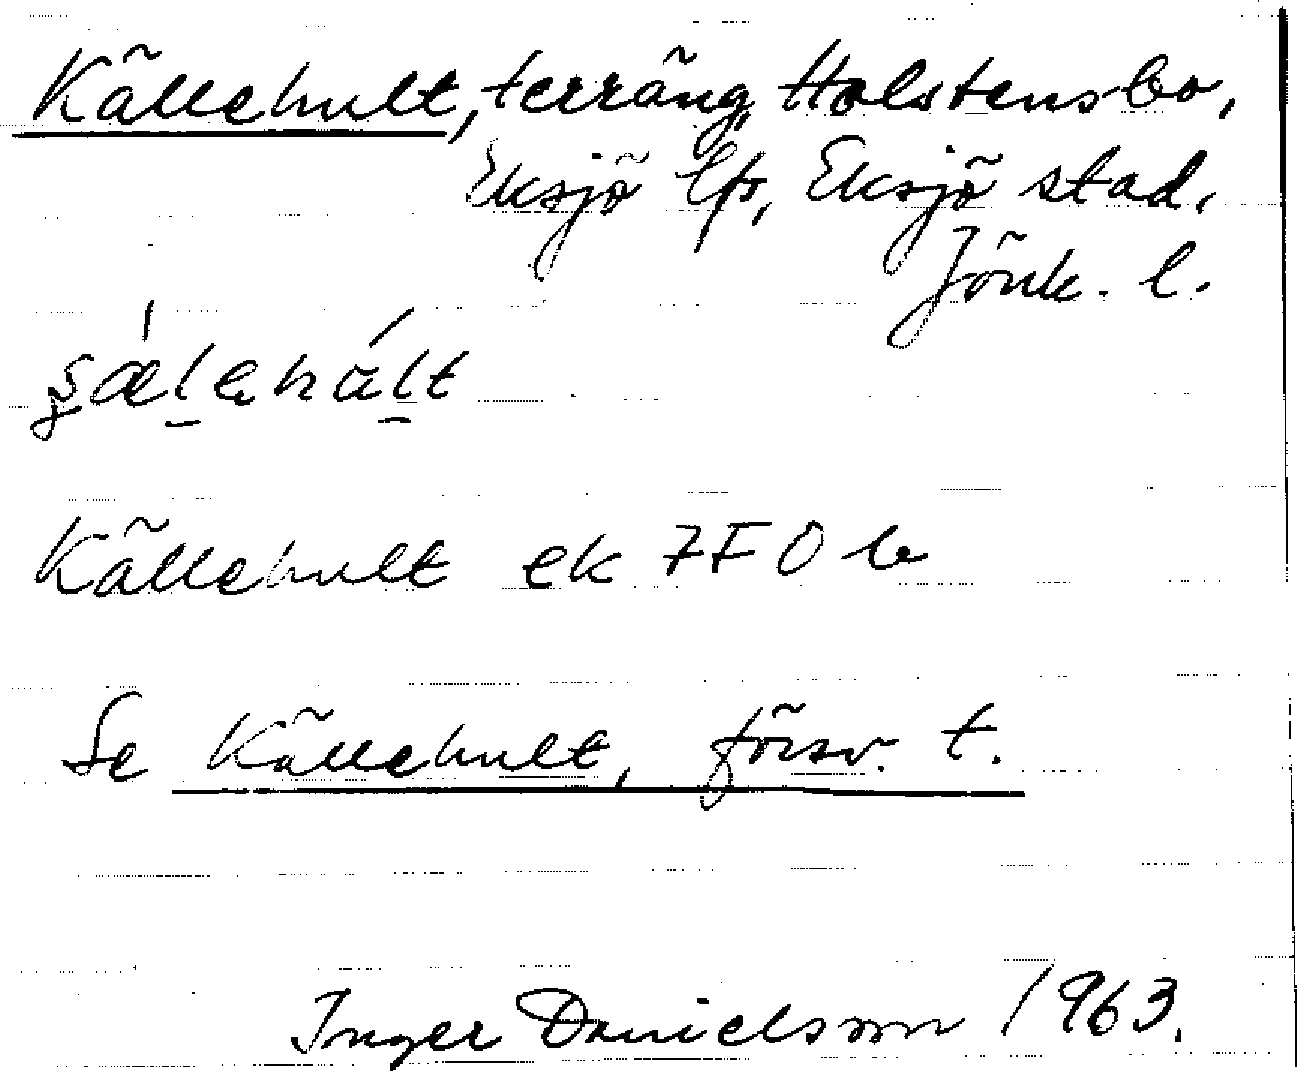 Källehult, terräng, Holstensbo,
Eksjö lfs, Eksjö stad,
Jönk. l.
Källehult ek 7F0b
Se Källehult, försv. t.
Inger Danielsson 1963.